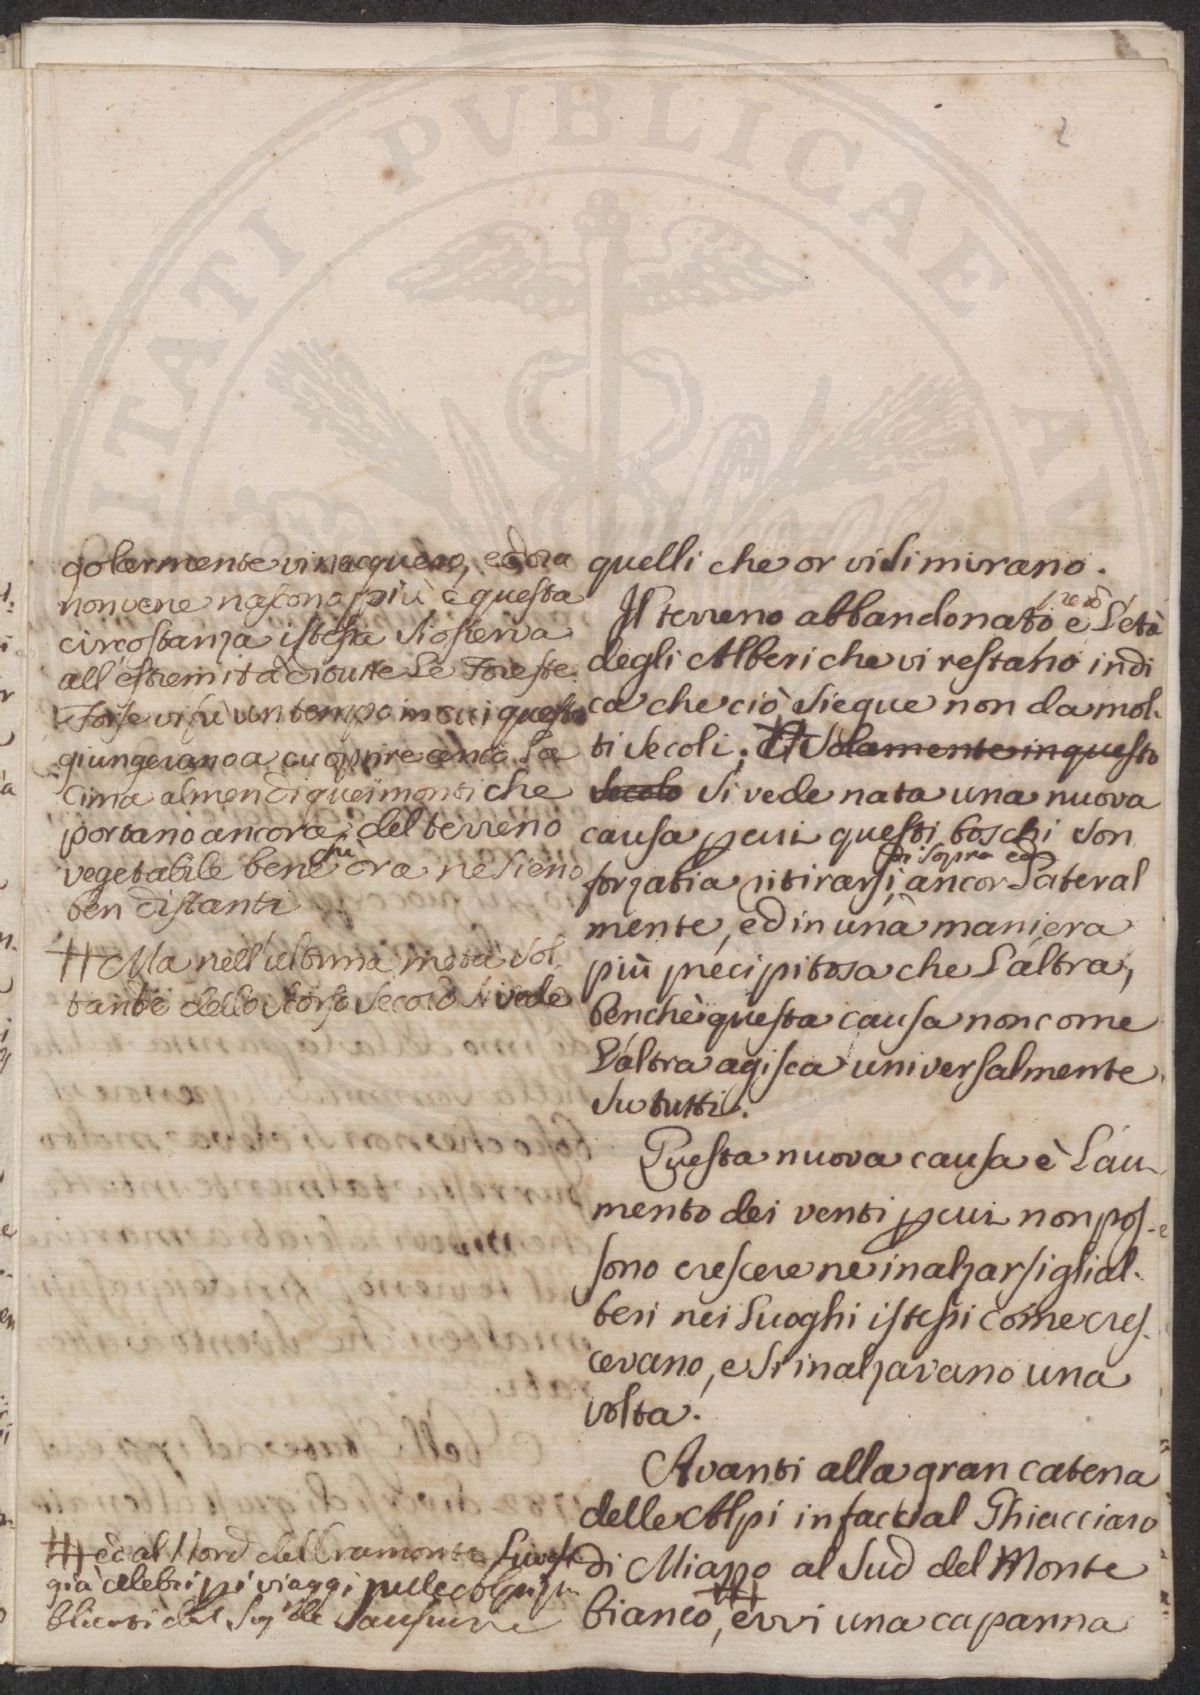 2
golarmente vi nacquero, ed ora
non vene nascono più e questa
circostanza istessa si osserva
all'estremità di tutte le Foreste.
Forse vi fù un tempo in cui queste
giungevano a cuoprire anco la
cima almen di quei monti che
portano ancora del terreno
vegetabile benchè ora ne sieno
ben distanti
# Ma nell'ultima metà sol
tanto dello scorso secolo si vede
già celebri pei viaggi nelle alpi pu
blicati dal Sig.r de Saussure
quelli che or vi si mirano.
Il terreno abbandonato, e l'età
degli Alberi che vi restano indi
ca che ciò siegue non da mol-
ti secoli. Solamente in questo
secolo si vede nata una nuova
causa per cui questi boschi son
forzati a ritirarsi di sopra ed ancor lateral
mente, ed in una maniera
più precipitosa che l'altra,
benchè questa causa non come
l'altra agisca universalmente
su tutti.
Questa nuova causa è l'au-
mento dei venti per cui non pos-
sono crescere ne inalzarsi gli al-
beri nei luoghi istessi come cres-
cevano, e si inalzavano una
volta.
Avanti alla gran catena
delle Alpi in faccia al Ghiacciaro
di Miage al Sud del Monte
bianco, evvi una capanna
PUBLICAE